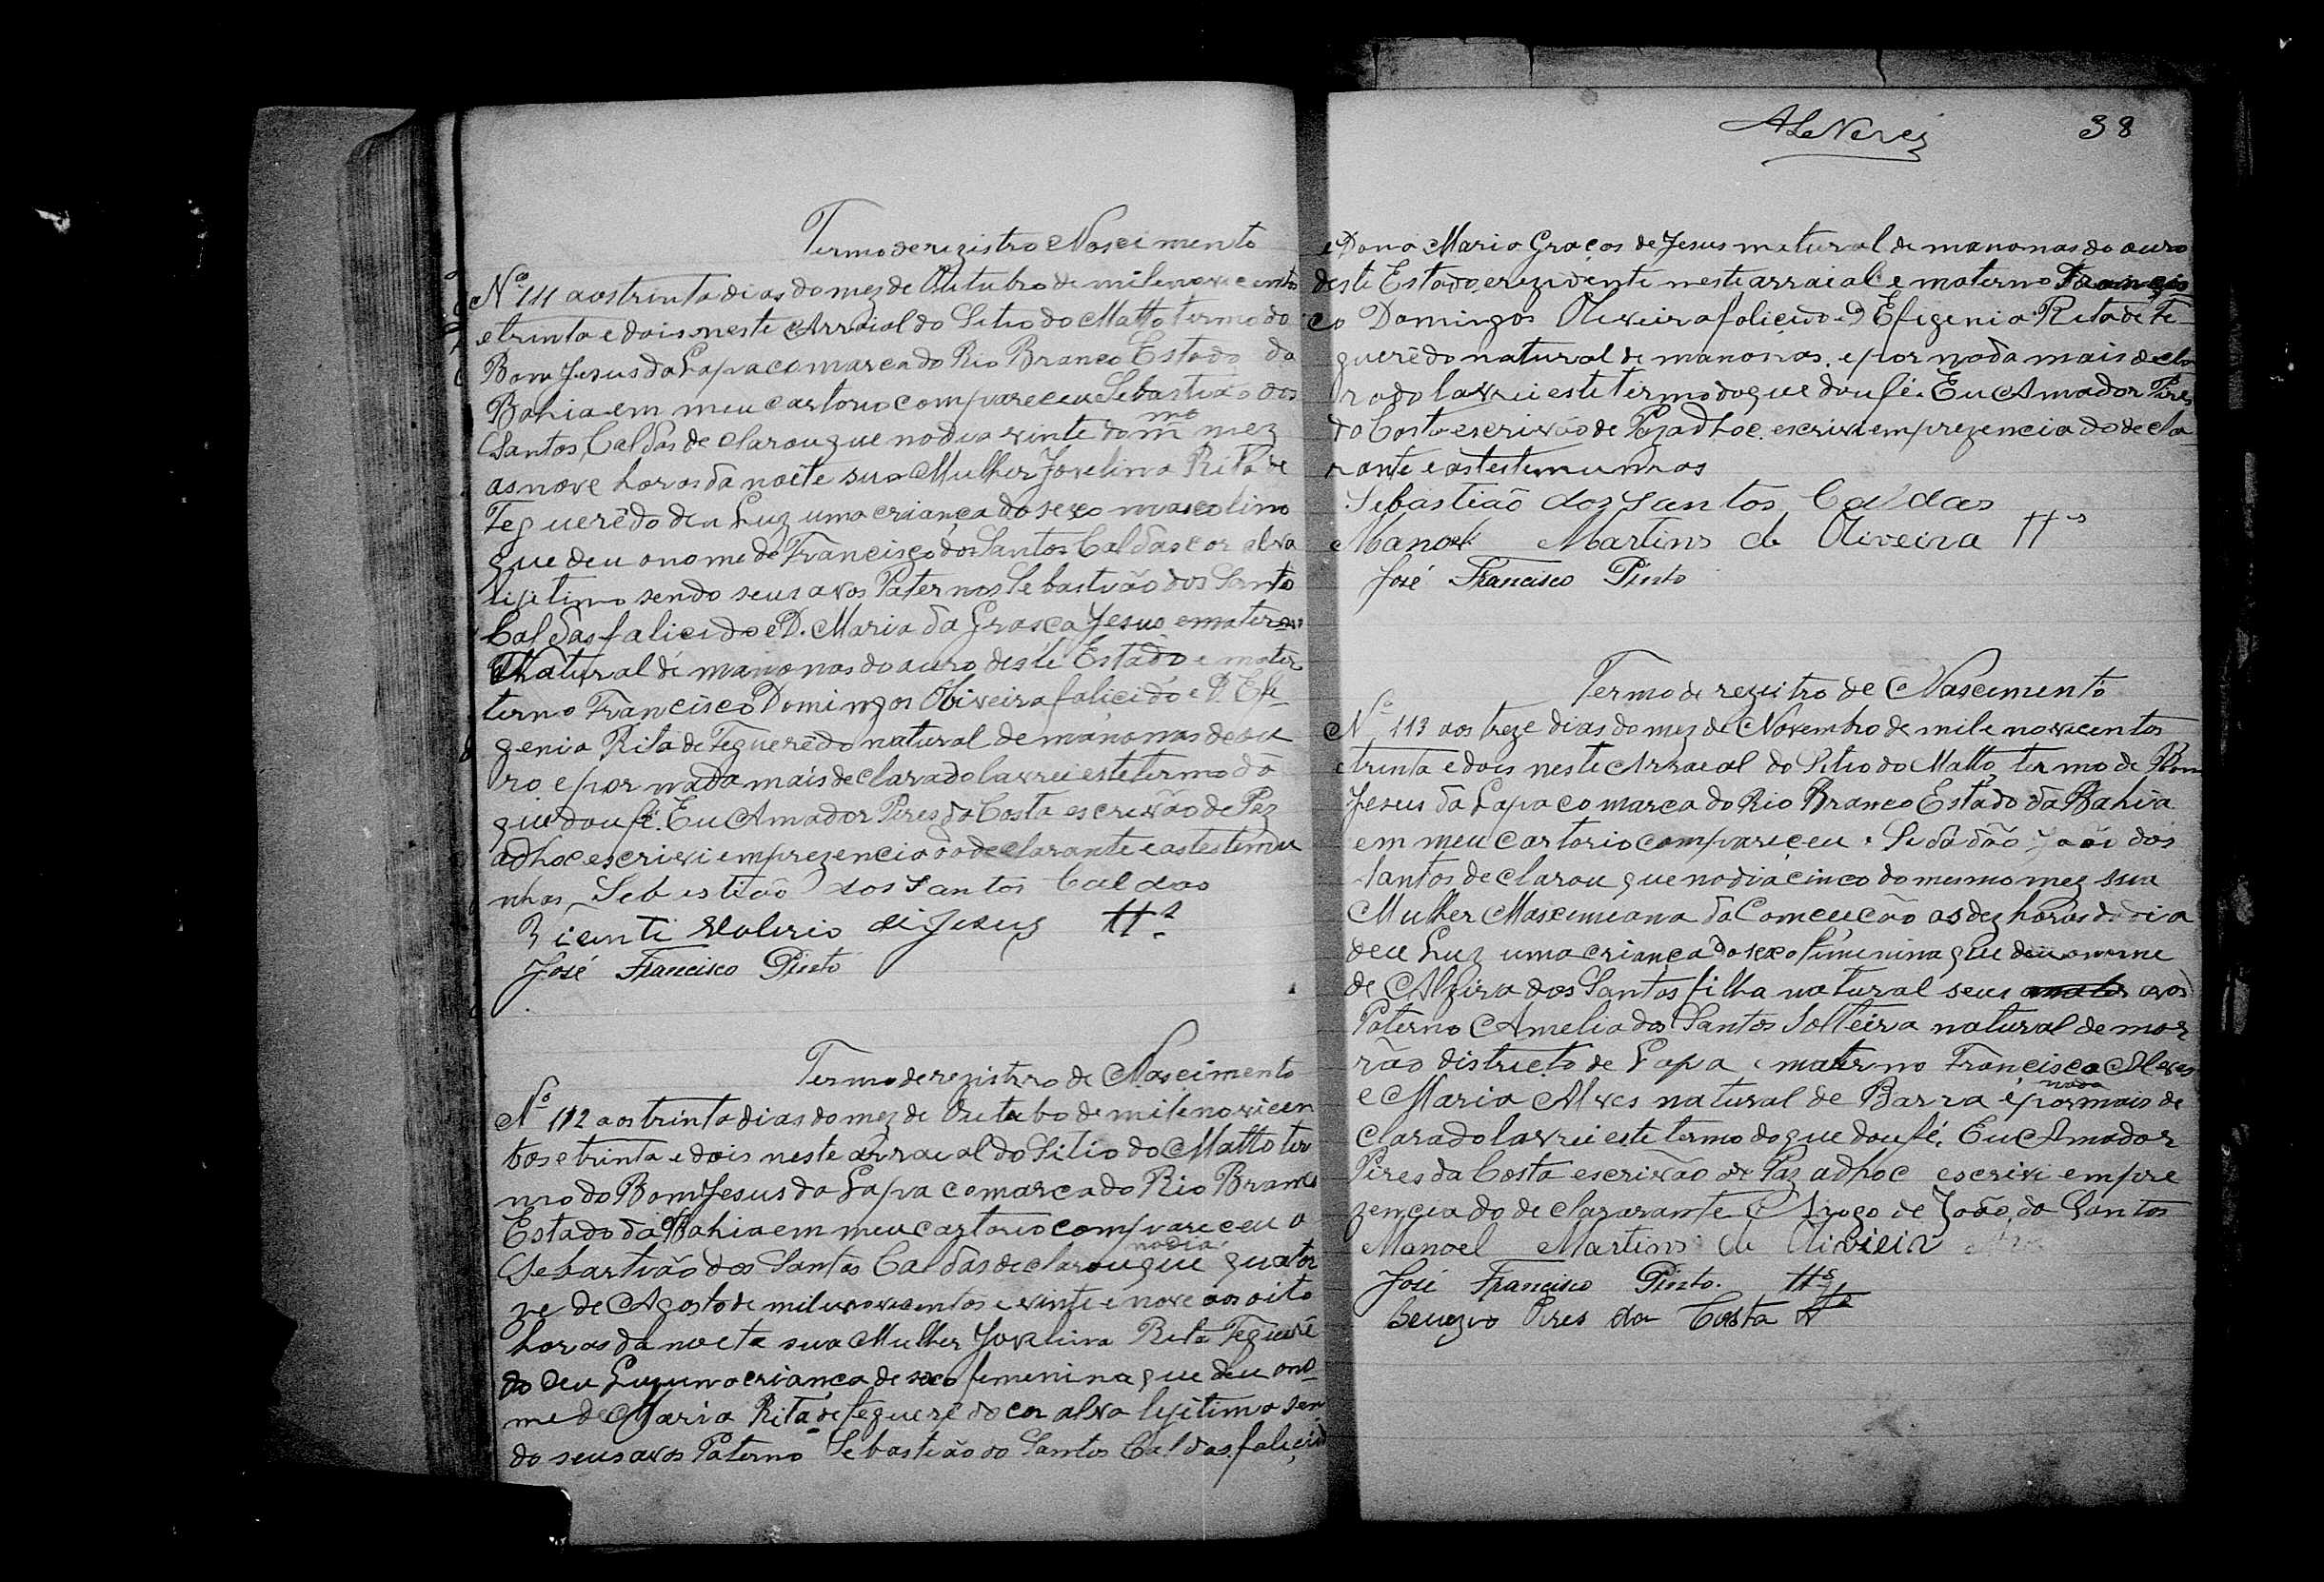 Termo de registro Nascimento
Nº 111 aos trinta dias do mez de Outubro de mil e novecentos
e trinta e dois neste Arraial do Sitio do Matto termo do
Bom Jesus da Lapa comarca do Rio Branco Estado da
Bahia em meu cartorio compareceu Sebastião dos
Santos Caldas declarou que no dia vinte do mmo mez
as nove horas da noite sua Mulher Jovelina Rita de
Teguerêdo deu Luz uma criança do sexo mascolino
que deu o nome de Francisco dos Santos Caldas cor alva
lijitimo sendo seus avos Paternos Sebastião dos Santo
Caldas falicido e D. Maria da Grasca Jesus e materno
Natural de manonas do auro deste Estado e mater
terno Francisco Domingos Oliveira falicido e D. Efi-
genia Rita de Teguerêdo natural de manonas de ou
ro e por nada mais declarado lavrei este termo do
que dou fé. Eu Amador Pires da Costa escrivão de Paz
adhoc escrivi em prezencia do declarante e as testemu
nhas Sebastião dos Santos Caldas
Vicenti Valerio di Jesus ttª
José Francisco Pinto
Termo de registro de Nascimento
Nº 112 aos trinta dias do mez de Outubo de mil e novicen
tos e trinta e dois neste arraial do Sitio do Matto ter
mo do Bom Jesus da Lapa comarca do Rio Branco
Estado da Bahia em meu cartorio compareceu o
Sebastião dos Santos Caldas declarou que no dia quator
ze de Agosto de mil e novecentos e vinte e nove as oito
horas da noite sua Mulher Jovelina Rita Teguerê
do deu Luz uma criança de sexo femenina que deu o no-
me de Maria Rita de Teguerêdo cor alva lijitima sen
do seus avos Paterno Sebastião do Santos Caldas falicido
ALNeves 38
e Dona Maria Graças de Jesus natural de manonas do auro
deste Estado e rezidente neste arraial e materno Francis
co Domingos Oliveira falicido e D Efigenia Rita de Te-
guerêdo natural de manonas. e por nada mais decla
rado lavrei este termo do que dou fé. Eu Amador Pires
da Costa escrivão de Paz adhoc. escrivi em prezencia do decla
rante e as testemunhas
Sebastião dos Santos Caldas
Manoel Martins de Oliveira ttas
José Francisco Pinto
Termo de registro de Nascimento
Nº 113 aos treze dias do mez de Novembro de mil e novecentos
e trinta e dois neste Arraial do Sitio do Matto, termo de Bom
Jesus da Lapa comarca do Rio Branco Estado da Bahia
em meu cartorio compareceu o Sidadão João dos
Santos declarou que no dia cinco do mesmo mez sua
Mulher Mascimiana da Comceição as dez horas do dia
deu Luz uma criança do sexo fimenina que deu o nome
de Alzira dos Santos filha natural seus avos
Paterno Amelia dos Santos Solteira natural de mor
rão districto de Lapa e materno Francisco Alves
e Maria Alves natural de Barra e por nada mais de
clarado lavrei este termo do que dou fé. Eu Amador
Pires da Costa escrivão de Paz adhoc escrivi em pre
zencia do declararante Arogo de João do Santos
Manoel Martins de Oliveira
José Francisco Pinto. ttas
Pires da Costa tta